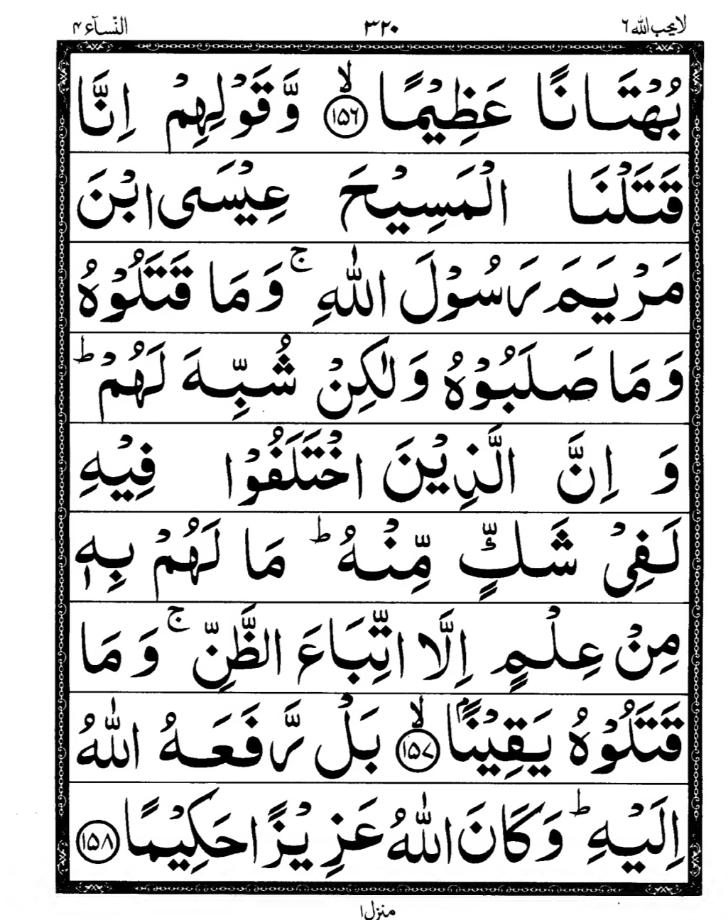 لا یحب الله ٦ ٣٢٠ النسآء ٤
بُهْتَانًا عَظِيْمًا ۙ﴿١٥٦﴾ وَّقَوْلِهِمْ اِنَّا
قَتَلْنَا الْمَسِيْحَ عِيْسَى ابْنَ
مَرْيَمَ رَسُوْلَ اللّٰهِ ۚ وَمَا قَتَلُوْهُ
وَمَا صَلَبُوْهُ وَلٰكِنْ شُبِّهَ لَهُمْ ؕ
وَ اِنَّ الَّذِيْنَ اخْتَلَفُوْا فِيْهِ
لَفِيْ شَكٍّ مِّنْهُ ؕ مَا لَهُمْ بِهٖ
مِنْ عِلْمٍ اِلَّا اتِّبَاعَ الظَّنِّ ۚ وَمَا
قَتَلُوْهُ يَقِيْنًۢا ۙ﴿١٥٧﴾ بَلْ رَّفَعَهُ اللّٰهُ
اِلَيْهِ ؕ وَكَانَ اللّٰهُ عَزِيْزًا حَكِيْمًا ﴿١٥٨﴾
منزل ١